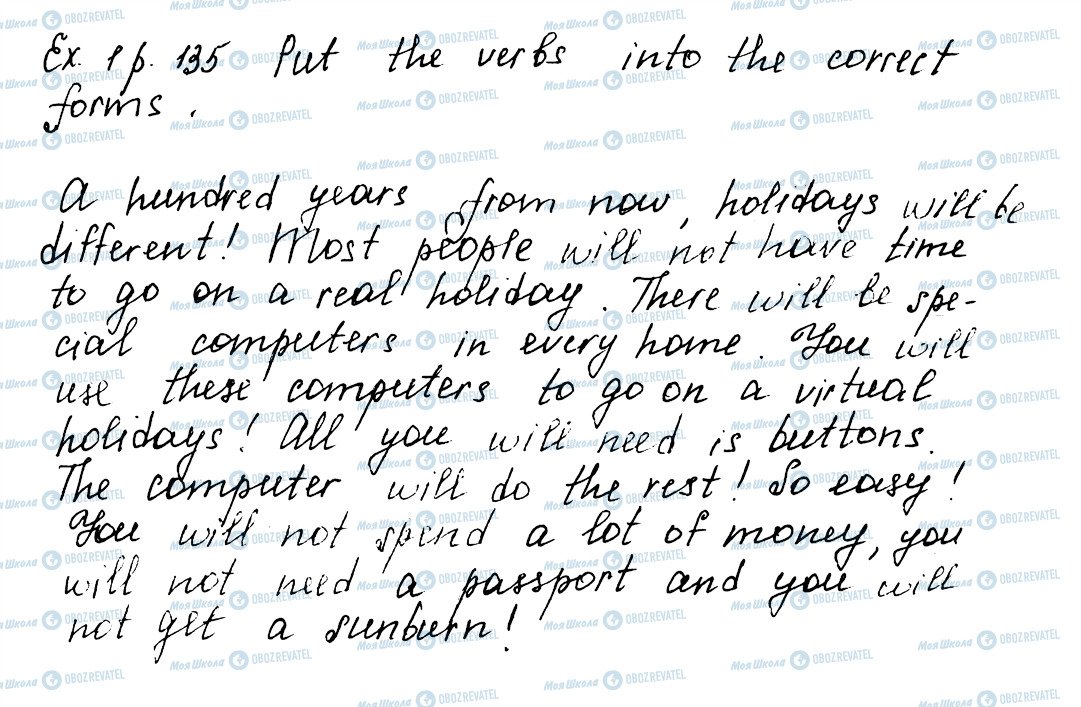 Ex. 1 p. 135 Put the verbs into the correct
forms.
A hundred years from now, holidays will be
different! Most people will not have time
to go on a real holiday. There will be spe-
cial computers in every home. You will
use these computers to go on a virtual
holidays! All you will need is buttons.
The computer will do the rest! So easy!
You will not spend a lot of money, you
will not need a passport and you will
not get a sunburn!